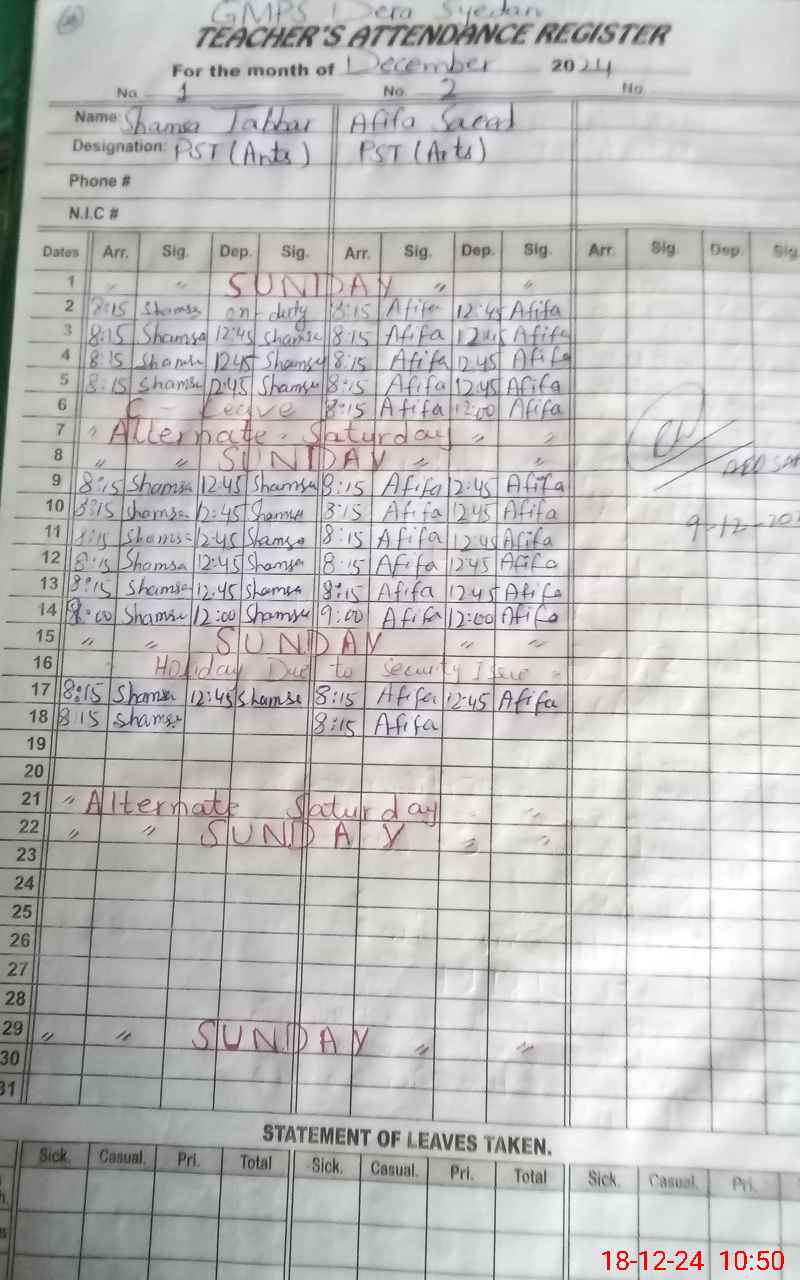 GMPS Dera Syedan
TEACHER'S ATTENDANCE REGISTER
For the month of December 2024
No 1 No. 2 No.
Name: Shamsa Jabbar Afifa Saeed
Designation: PST (Arts) PST (Arts)
Phone #
N.I.C #
Dates Arr. Sig. Dep. Sig. Arr. Sig. Dep. Sig. Arr. Sig. Dep. Sig
1 " " SUNDAY " "
2 8:15 Shamsa on duty 8:15 Afifa 12:45 Afifa
3 8:15 Shamsa 12:45 Shamsa 8:15 Afifa 12:45 Afifa
4 8:15 Shamsa 12:45 Shamsa 8:15 Afifa 12:45 Afifa
5 8:15 Shamsa 12:45 Shamsa 8:15 Afifa 12:45 Afifa
6 C - Leave 8:15 Afifa 12:00 Afifa
7 " Alternate - Saturday " "
8 " " SUNDAY " "
9 8:15 Shamsa 12:45 Shamsa 8:15 Afifa 12:45 Afifa
10 8:15 Shamsa 12:45 Shamsa 8:15 Afifa 12:45 Afifa
9-12-20
11 8:15 Shamsa 12:45 Shamsa 8:15 Afifa 12:45 Afifa
12 8:15 Shamsa 12:45 Shamsa 8:15 Afifa 12:45 Afifa
13 8:15 Shamsa 12:45 Shamsa 8:15 Afifa 12:45 Afifa
14 9:00 Shamsa 12:00 Shamsa 9:00 Afifa 12:00 Afifa
15 " " SUNDAY " "
16 Holiday Due to Security Issue
17 8:15 Shamsa 12:45 Shamsa 8:15 Afifa 12:45 Afifa
18 8:15 Shamsa 8:15 Afifa
19
20
21 " Alternate Saturday "
22 " " SUNDAY " "
23
24
25
26
27
28
29 " " SUNDAY " "
30
31
STATEMENT OF LEAVES TAKEN.
Sick. Casual. Pri. Total Sick. Casual. Pri. Total Sick. Casual. Pri.
18-12-24 10:50